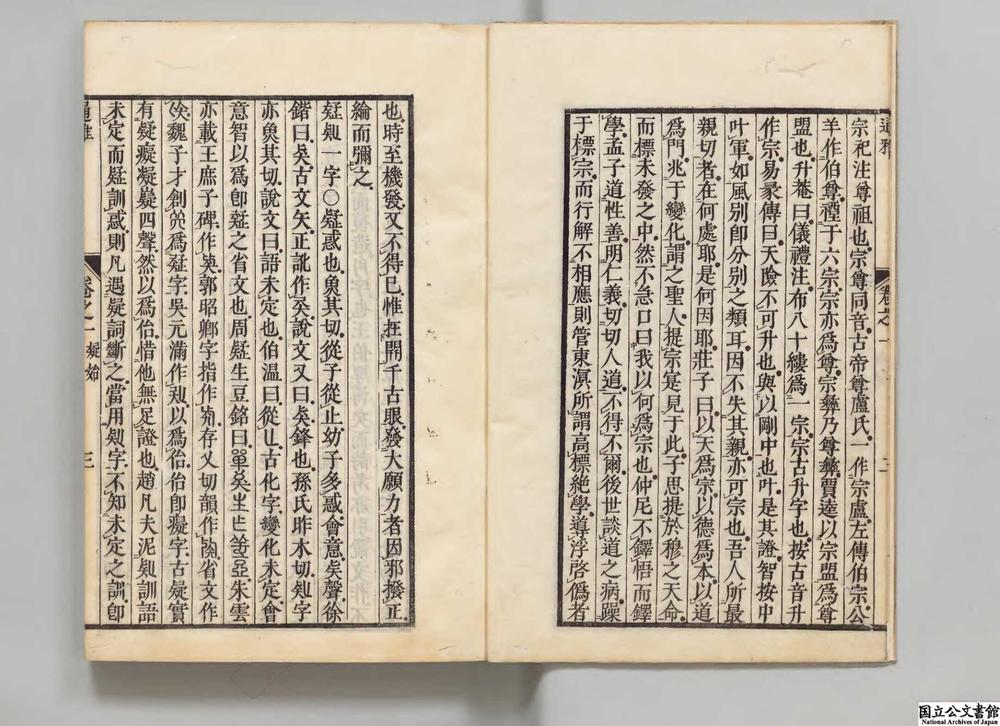 宗祀注尊祖也宗尊同音古帝尊盧氏一作宗盧左傳伯宗公
羊作伯尊禋于六宗宗亦爲尊宗彝乃尊彝賈逵以宗盟爲尊
盟也升菴曰儀禮注布八十縷爲一宗宗古升字也按古音升
作宗易彖傳曰天險不可升也與以剛中也叶是其證智按中
叶軍如風別卽分別之類耳因不失其親亦可宗也吾人所最
親切者在何處耶是何因耶莊子曰以天爲宗以德爲本以道
爲門兆于變化謂之聖人提宗寔見于此子思提於穆之天命
而標未發之中然不急口曰我以何爲宗也仲尼不鐸悟而鐸
學孟子道性善明仁義切切人道不得不爾後世談道之病躁
于標宗而行解不相應則管東溟所謂高標絶學導浮啓僞者
也時至機發又不得已惟在開千古眼發大願力者因邪撥正
綸而彌之
一字○疑惑也魚其切從子從止幼子多惑會意矣聲徐
鍇曰矣古文矢正訛作説文又曰鋒也孫氏昨木切字
亦魚其切說文曰語未定也伯溫曰從匕古化字變化未定會
意智以爲卽之省文也周生豆銘曰朱雲
亦載王庶子碑作郭昭卿字指作存乂切韻作省文作
魏子才創爲字吳元滿作以爲佁佁卽癡字古疑實
有疑癡凝嶷四聲然以爲佁惜他無足證也趙凡夫泥訓語
未定而疑訓惑則凡遇疑詞斷之當用字不知未定之訓卽
通雅
卷之一
疑始
三
国立公文書館
National Archives of Japan